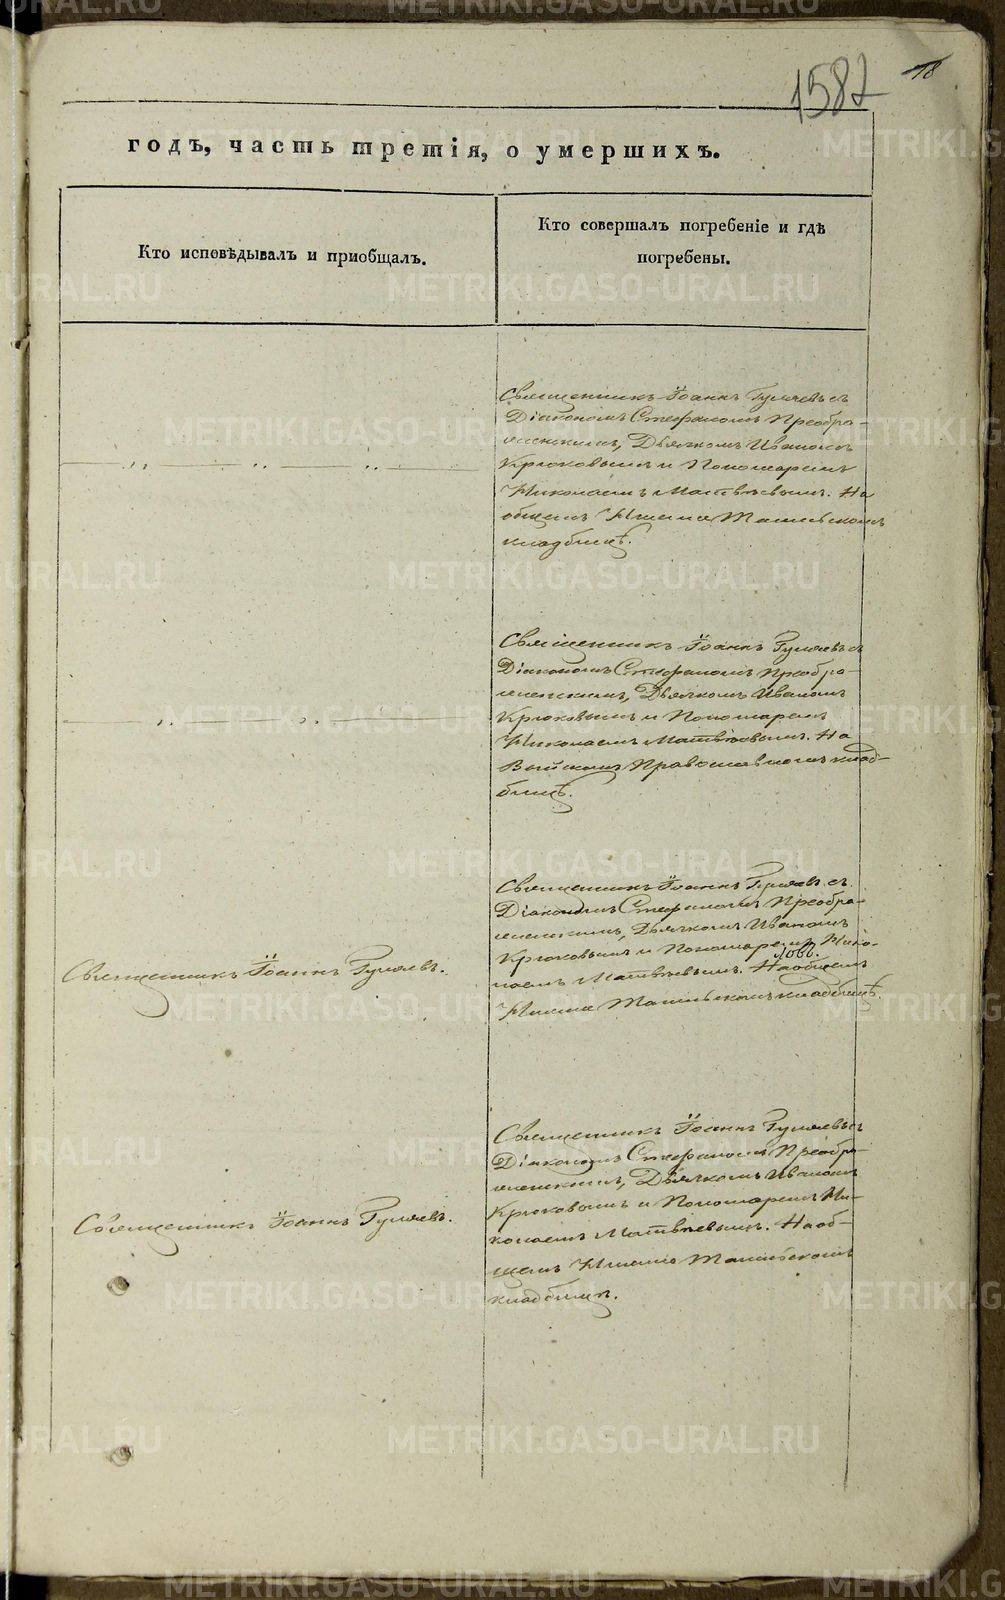 1582
18
годъ, часть третія, о умершихъ.
Кто исповѣдывалъ и приобщалъ.
Кто совершалъ погребеніе и гдѣ
погребены.
Священникъ Іоаннъ Гуляевъ съ
Діакономъ Стефаномъ Преобра-
женскимъ, Дьячкомъ Иваномъ
Крюковымъ и Пономаремъ
Николаемъ Матвѣевымъ. На
общемъ Нижне Тагильскомъ
кладбищѣ.
Священникъ Іоаннъ Гуляевъ съ
Діакономъ Стефаномъ Преобра-
женскимъ, Дьячкомъ Иваномъ
Крюковымъ и Пономаремъ
Николаемъ Матвѣевымъ. На
Выйскомъ Православномъ клад-
бищѣ.
Священникъ Іоаннъ Гуляевъ.
Священникъ Іоаннъ Гуляевъ съ
Діакономъ Стефаномъ Преобра-
женскимъ, Дьячкомъ Иваномъ
Крюковымъ и Пономаремъ Нико-
лаемъ Матвѣевымъ. На общемъ
Нижне Тагильскомъ кладбищѣ.
Священникъ Іоаннъ Гуляевъ.
Священникъ Іоаннъ Гуляевъ съ
Діакономъ Стефаномъ Преобра-
женскимъ, Дьячкомъ Иваномъ
Крюковымъ и Пономаремъ Ни-
колаемъ Матвѣевымъ. На об-
щемъ Нижне Тагильскомъ
кладбищѣ.
METRIKI.GASO-URAL.RU